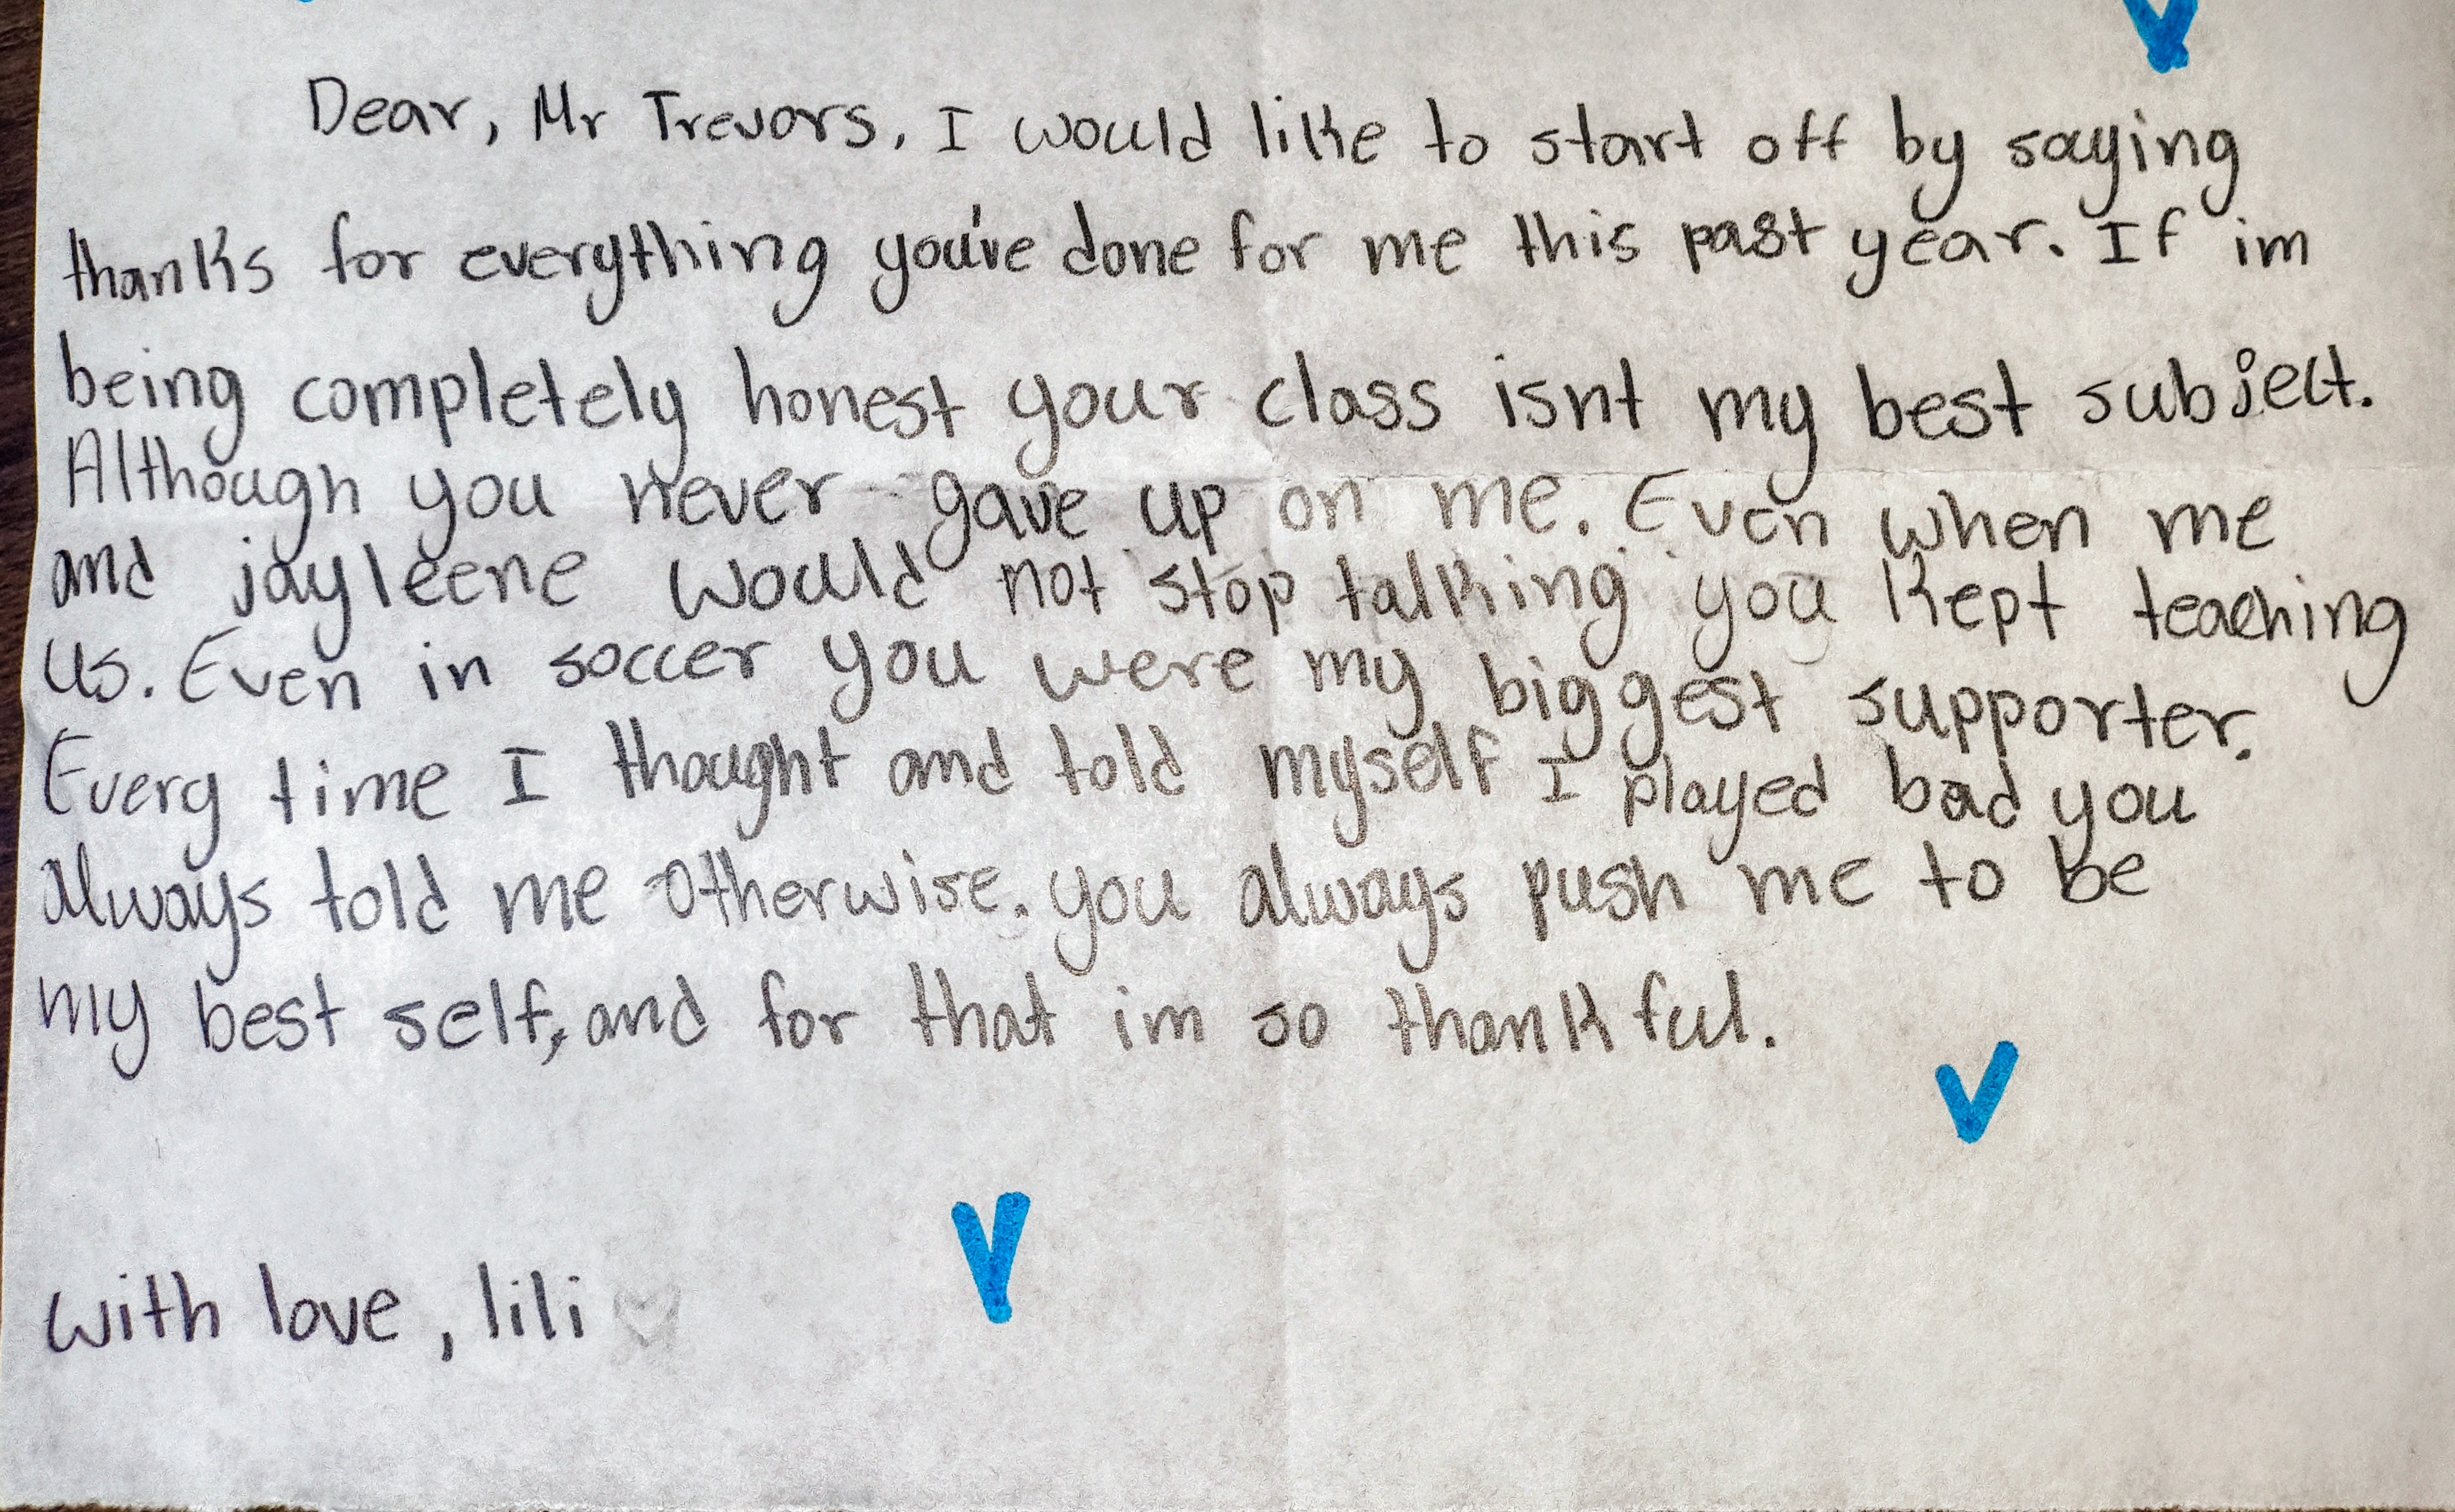 Dear, Mr Trevors. I would like to start off by saying
thanks for everything you've done for me this past year. If im
being completely honest your class isnt my best subject.
Although you never gave up on me. Even when me
and jayleene would not stop talking you kept teaching
us. Even in soccer you were my biggest supporter.
Every time I thought and told myself I played bad you
always told me otherwise. you always push me to be
my best self, and for that im so thankful.
with love, lili